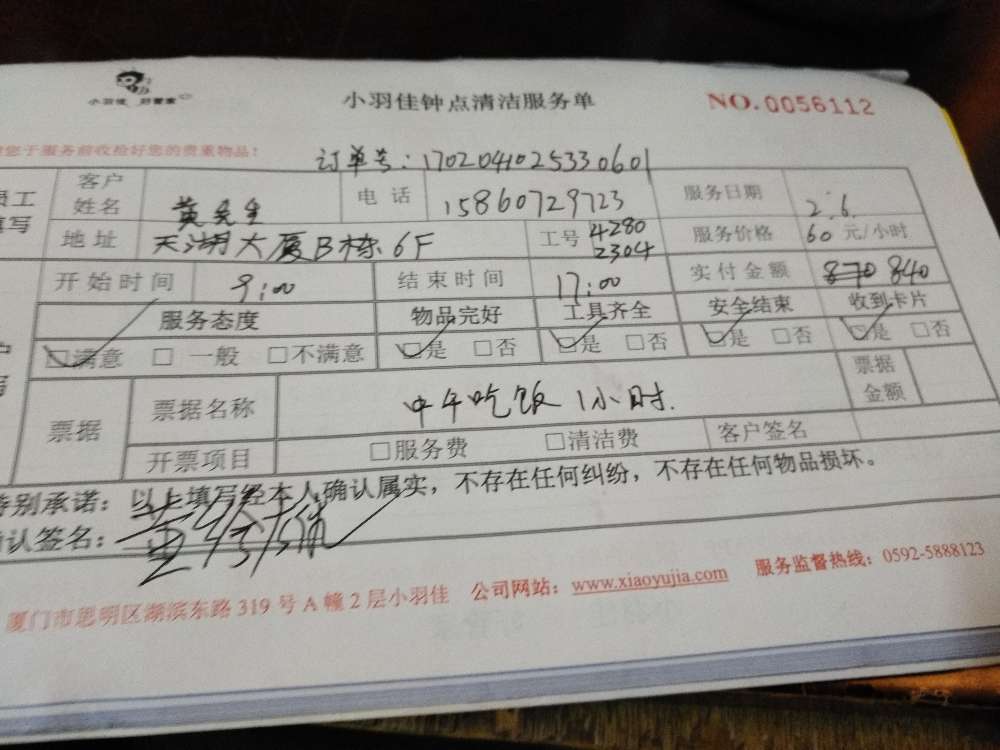 小羽佳 好管家
小羽佳钟点清洁服务单 NO.0056112
您于服务前收拾好您的贵重物品！
订单号:1702041025330601
员工 客户姓名 黄先生 电话 15860729723 服务日期 2.6.
填写 地址 天湖大厦B栋6F 工号 4280 2304 服务价格 60 元/小时
开始时间 9:00 结束时间 17:00 实付金额 870 840
服务态度 物品完好 工具齐全 安全结束 收到卡片
☑满意 □一般 □不满意 ☑是 □否 ☑是 □否 ☑是 □否 ☑是 □否
票据 票据名称 中午吃饭1小时. 票据金额
开票项目 □服务费 □清洁费 客户签名
特别承诺：以上填写经本人确认属实，不存在任何纠纷，不存在任何物品损坏。
确认签名：
厦门市思明区湖滨东路319号A幢2层小羽佳 公司网站：www.xiaoyujia.com 服务监督热线：0592-5888123